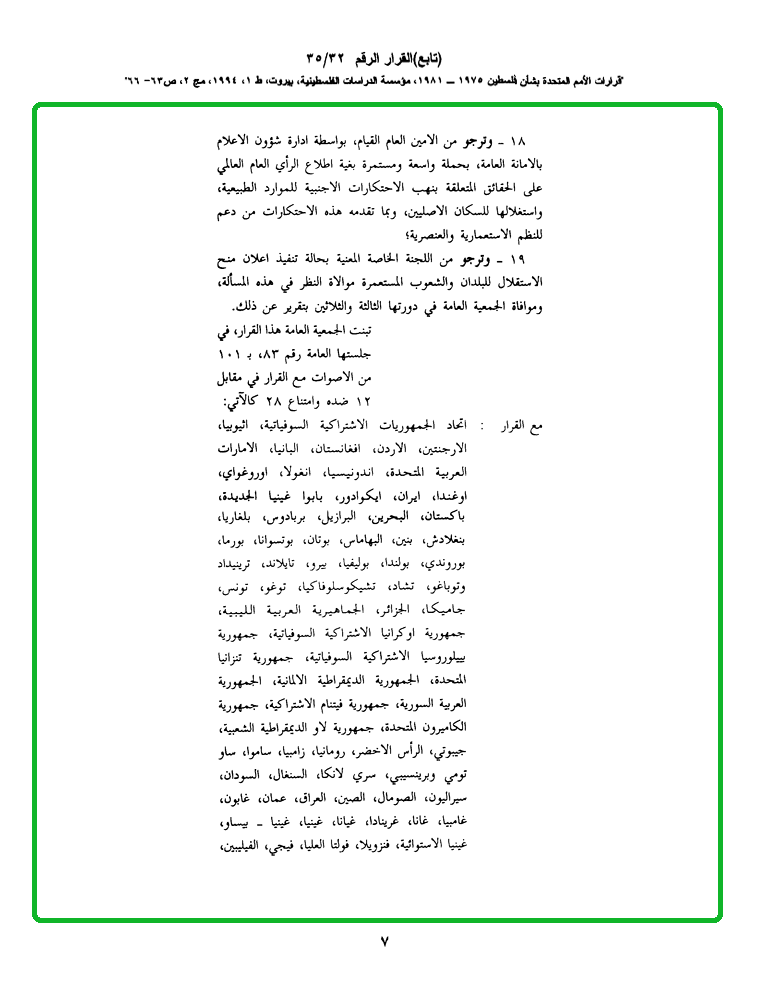 (تابع)القرار الرقم ٣٥/٣٢
"قرارات الأمم المتحدة بشأن فلسطين ١٩٧٥ ــ ١٩٨١، مؤسسة الدراسات الفلسطينية، بيروت، ط ١، ١٩٩٤، مج ٢، ص٦٣- ٦٦"
١٨ ـ وترجو من الامين العام القيام، بواسطة ادارة شؤون الاعلام
بالامانة العامة، بحملة واسعة ومستمرة بغية اطلاع الرأي العام العالمي
على الحقائق المتعلقة بنهب الاحتكارات الاجنبية للموارد الطبيعية،
واستغلالها للسكان الاصليين، وبما تقدمه هذه الاحتكارات من دعم
للنظم الاستعمارية والعنصرية؛
١٩ ـ وترجو من اللجنة الخاصة المعنية بحالة تنفيذ اعلان منح
الاستقلال للبلدان والشعوب المستعمرة موالاة النظر في هذه المسألة،
وموافاة الجمعية العامة في دورتها الثالثة والثلاثين بتقرير عن ذلك.
تبنت الجمعية العامة هذا القرار، في
جلستها العامة رقم ٨٣، بـ ١٠١
من الاصوات مع القرار في مقابل
١٢ ضده وامتناع ٢٨ كالآتي:
مع القرار : اتحاد الجمهوريات الاشتراكية السوفياتية، اثيوبيا،
الارجنتين، الاردن، افغانستان، البانيا، الامارات
العربية المتحدة، اندونيسيا، انغولا، اوروغواي،
اوغندا، ايران، ايكوادور، بابوا غينيا الجديدة،
باكستان، البحرين، البرازيل، بربادوس، بلغاريا،
بنغلادش، بنين، البهاماس، بوتان، بوتسوانا، بورما،
بوروندي، بولندا، بوليفيا، بيرو، تايلاند، ترينيداد
وتوباغو، تشاد، تشيكوسلوفاكيا، توغو، تونس،
جاميكا، الجزائر، الجماهيرية العربية الليبية،
جمهورية اوكرانيا الاشتراكية السوفياتية، جمهورية
بييلوروسيا الاشتراكية السوفياتية، جمهورية تنزانيا
المتحدة، الجمهورية الديمقراطية الالمانية، الجمهورية
العربية السورية، جمهورية فيتنام الاشتراكية، جمهورية
الكاميرون المتحدة، جمهورية لاو الديمقراطية الشعبية،
جيبوتي، الرأس الاخضر، رومانيا، زامبيا، ساموا، ساو
تومي وبرينسيبي، سري لانكا، السنغال، السودان،
سيراليون، الصومال، الصين، العراق، عمان، غابون،
غامبيا، غانا، غرينادا، غيانا، غينيا، غينيا ـ بيساو،
غينيا الاستوائية، فنزويلا، فولتا العليا، فيجي، الفيليبين،
٧